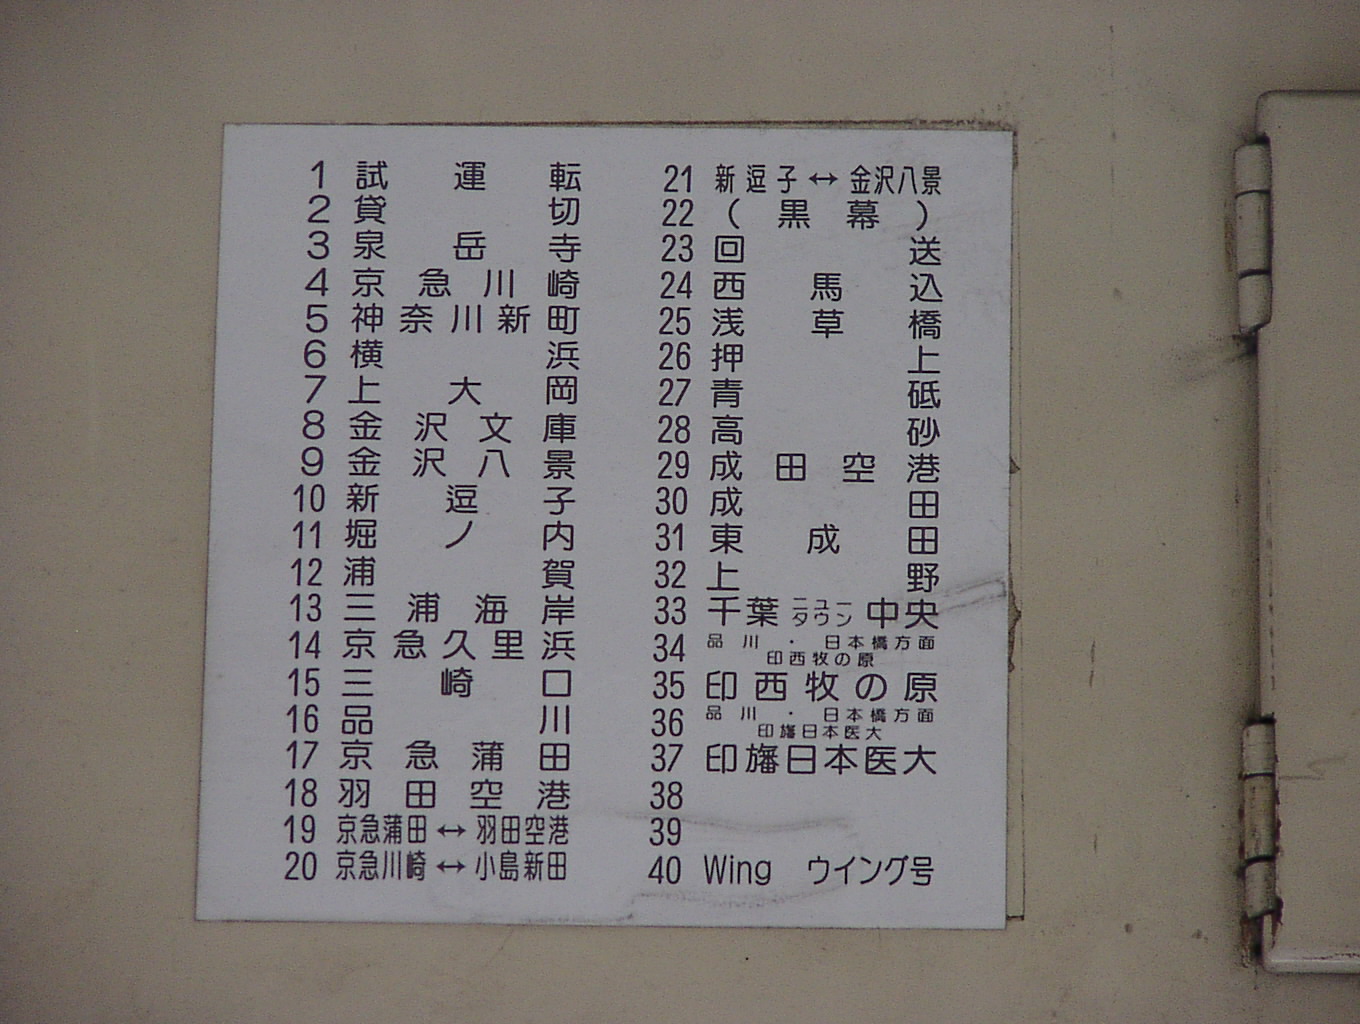 1 試運転
2 貸切
3 泉岳寺
4 京急川崎
5 神奈川新町
6 横浜
7 上大岡
8 金沢文庫
9 金沢八景
10 新逗子
11 堀ノ内
12 浦賀
13 三浦海岸
14 京急久里浜
15 三崎口
16 品川
17 京急蒲田
18 羽田空港
19 京急蒲田↔羽田空港
20 京急川崎↔小島新田
21 新逗子↔金沢八景
22 (黒幕)
23 回送
24 西馬込
25 浅草橋
26 押上
27 青砥
28 高砂
29 成田空港
30 成田
31 東成田
32 上野
33 千葉ニュータウン中央
34 品川・日本橋方面
印西牧の原
35 印西牧の原
36 品川・日本橋方面
印旛日本医大
37 印旛日本医大
38
39
40 Wing ウイング号